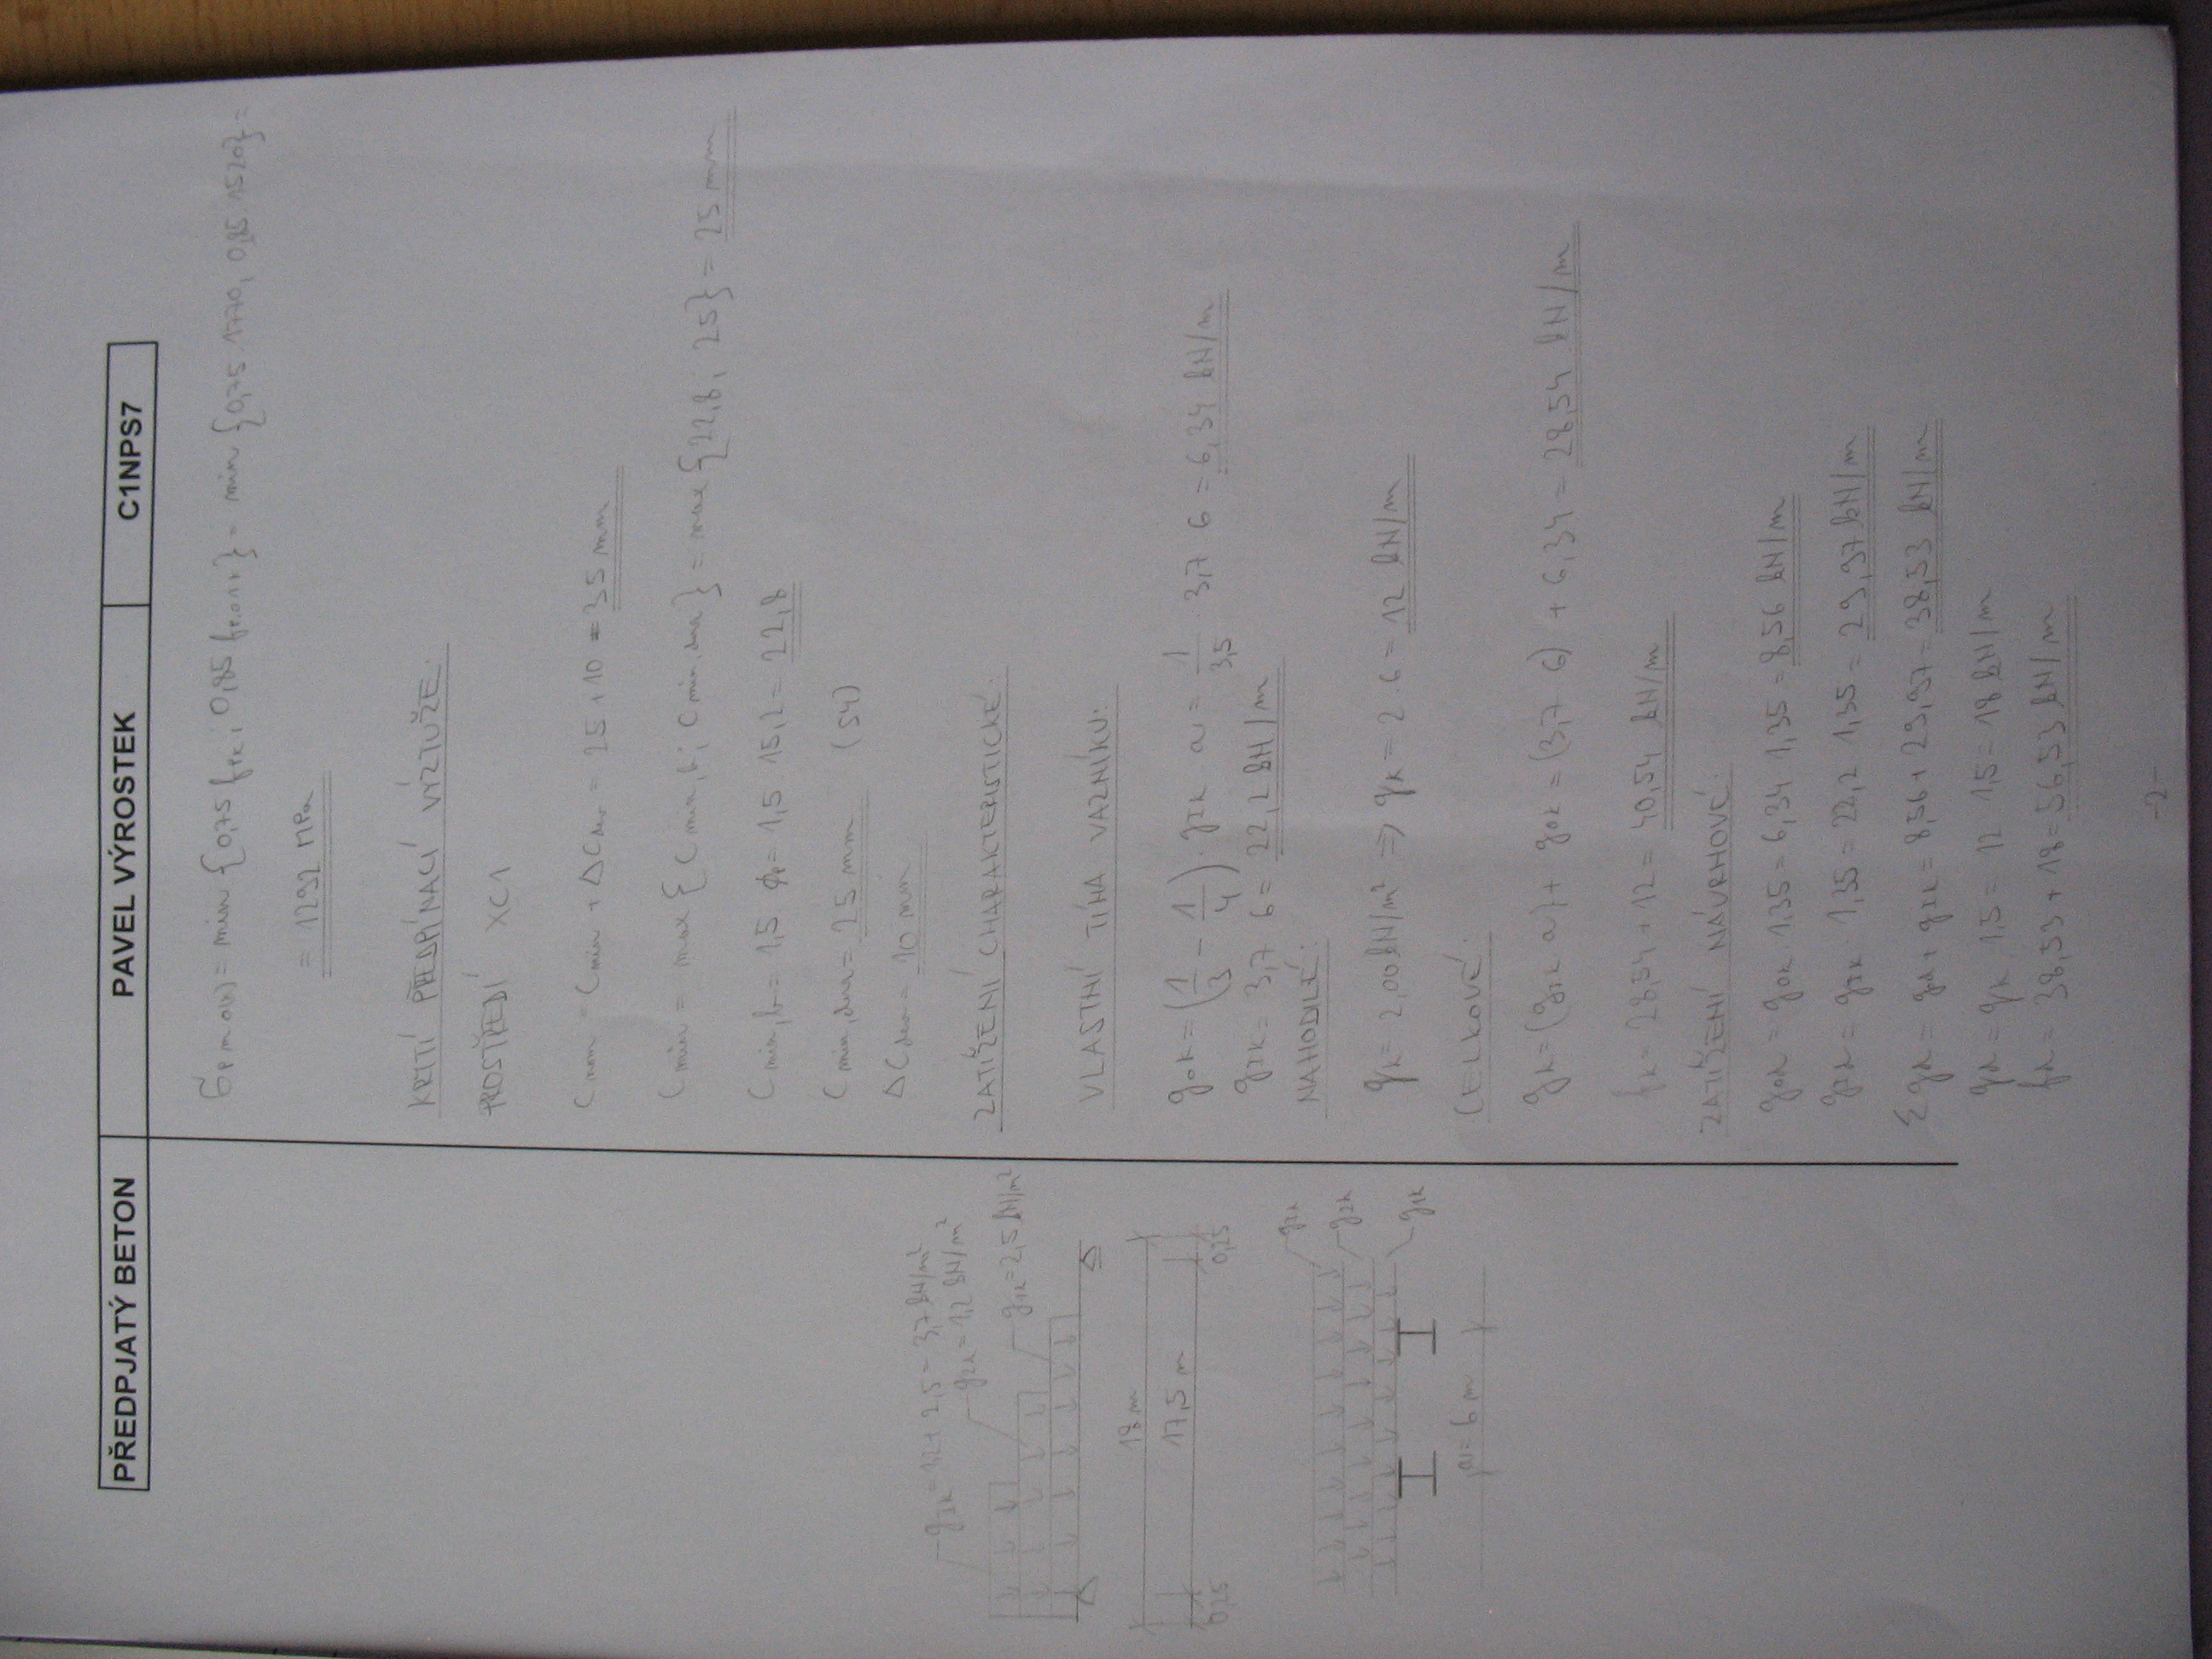 PŘEDPJATÝ BETON PAVEL VÝROSTEK C1NPS7
= 1292 MPa
KRTÍ PŘEDPÍNACÍ VÝZTUŽE:
PROSTŘEDÍ XC1
= 25 + 10 = 35 mm
C min = max { C min,b ; C min,dur } = max { 22,8 ; 25 } = 25 mm
C min,b = 1,5 ϕp = 1,5 15,2 = 22,8
C min,dur = 25 mm (S4)
ΔC dev = 10 mm
ZATÍŽENÍ CHARAKTERISTICKÉ:
VLASTNÍ TÍHA VAZNÍKU:
g0k = (1/3 - 1/4) · gIk a = 1/3,5 · 3,7 6 = 6,34 kN/m
gIk = 3,7 6 = 22,2 kN/m
NAHODILÉ:
qk = 2,00 kN/m² => qk = 2 · 6 = 12 kN/m
CELKOVÉ:
gk = (gIk a) + g0k = (3,7 6) + 6,34 = 28,54 kN/m
fk = 28,54 + 12 = 40,54 kN/m
ZATÍŽENÍ NÁVRHOVÉ:
g0d = g0k 1,35 = 6,34 1,35 = 8,56 kN/m
· 1,35 = 22,2 1,35 = 29,97 kN/m
= 8,56 + 29,97 = 38,53 kN/m
qd = qk 1,5 = 12 1,5 = 18 kN/m
fd = 38,53 + 18 = 56,53 kN/m
gIk = 1,2 + 2,5 = 3,7 kN/m²
g2k = 1,2 kN/m²
g1k = 2,5 kN/m²
18 m
17,5 m
0,25 0,25
g2k
g1k
a = 6 m
-2-